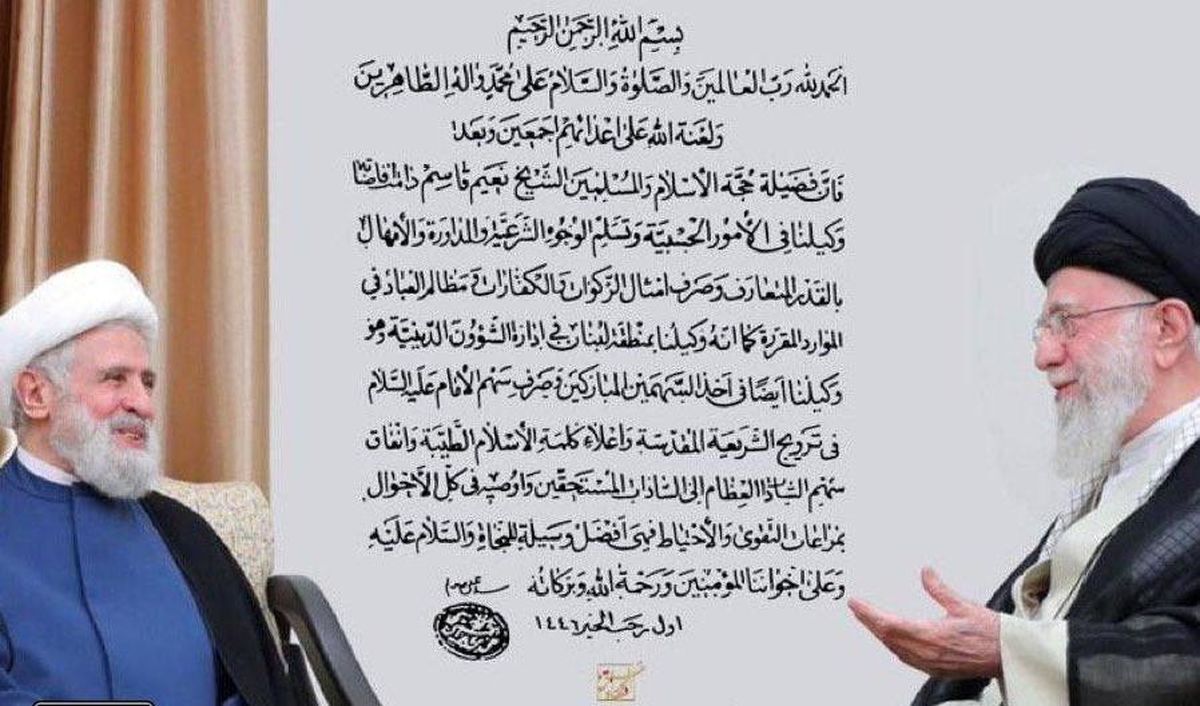 بسم الله الرحمن الرحيم
الحمد لله رب العالمين والصلوة والسلام على محمد واله الطاهرين
ولعنة الله على اعدائهم اجمعين وبعد
فان فضيلة حجة الاسلام والمسلمين الشيخ نعيم قاسم دامت افاضاته
وكيلنا فى الأمور الحسبية وتسلم الوجوه الشرعية والمداورة والأمهال
بالقدر المتعارف وصرف امثال الزكوات والكفارات و مظالم العباد في
الموارد المقررة كما انه وكيلنا بمنطقة لبنان في ادارة الشؤون الدينية وهو
وكيلنا ايضًا فى اخذ السهمين المباركين و صرف سهم الامام عليه السلام
فى ترويج الشريعة المقدسة واعلاء كلمة الاسلام الطيبة وانفاق
سهم السادة العظام الى السادات المستحقين واوصيه فى كل الأحوال
بمراعات التقوى والأحتياط فهى أفضل وسيلة للنجاة والسلام عليه
وعلى اخواننا المؤمنين ورحمة الله وبركاته
اول رجب الخير ١٤٤٦